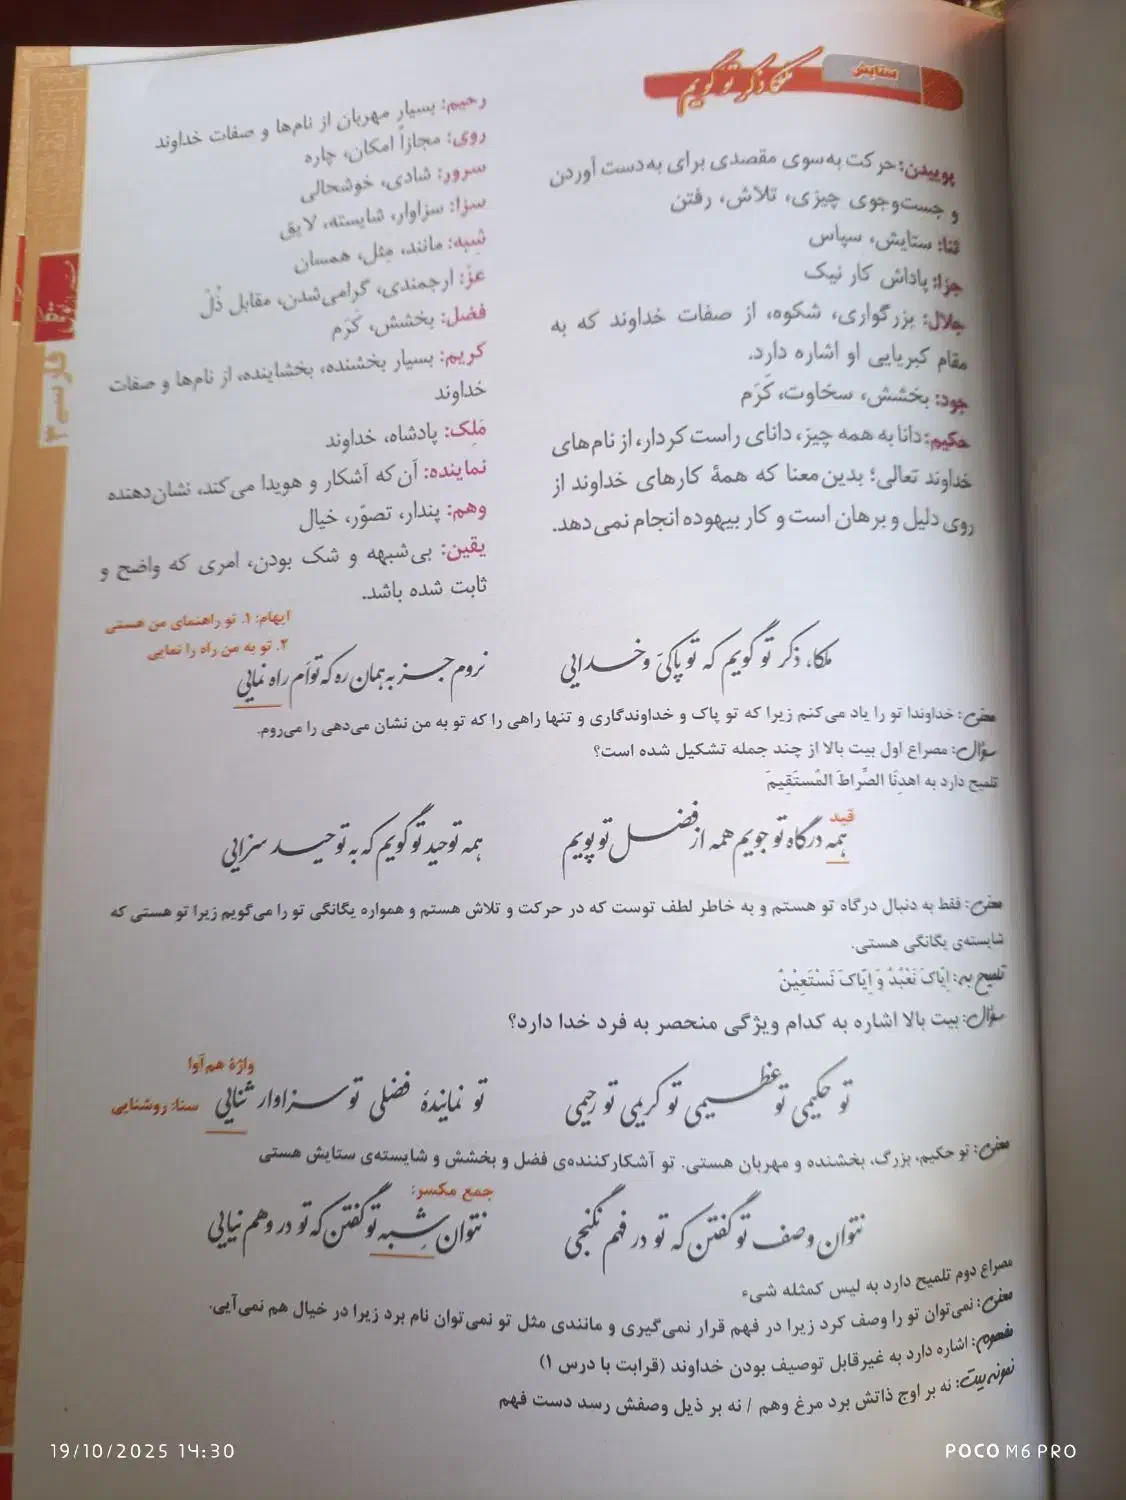 ستایش
ملکا ذکر تو گویم
پوییدن: حرکت به‌سوی مقصدی برای به‌دست آوردن
و جست‌وجوی چیزی، تلاش، رفتن
ثنا: ستایش، سپاس
جزا: پاداش کار نیک
جلال: بزرگواری، شکوه، از صفات خداوند که به
مقام کبریایی او اشاره دارد.
جود: بخشش، سخاوت، کَرَم
حکیم: دانا به همه چیز، دانای راست کردار، از نام‌های
خداوند تعالی؛ بدین معنا که همهٔ کارهای خداوند از
روی دلیل و برهان است و کار بیهوده انجام نمی‌دهد.
رحیم: بسیار مهربان از نام‌ها و صفات خداوند
روی: مجازاً امکان، چاره
سرور: شادی، خوشحالی
سزا: سزاوار، شایسته، لایق
شبه: مانند، مِثل، همسان
عزّ: ارجمندی، گرامی‌شدن، مقابل ذُلّ
فضل: بخشش، کَرَم
کریم: بسیار بخشنده، بخشاینده، از نام‌ها و صفات
خداوند
مَلِک: پادشاه، خداوند
نماینده: آن که آشکار و هویدا می‌کند، نشان‌دهنده
وهم: پندار، تصوّر، خیال
یقین: بی‌شبهه و شک بودن، امری که واضح و
ثابت شده باشد.
فارسی ۳
ایهام: ۱. تو راهنمای من هستی
۲. تو به من راه را نمایی
ملکا، ذکر تو گویم که تو پاکیّ و خدایی
نروم جز به همان ره که توأم راه نمایی
معنی: خداوندا تو را یاد می‌کنم زیرا که تو پاک و خداوندگاری و تنها راهی را که تو به من نشان می‌دهی را می‌روم.
سؤال: مصراع اول بیت بالا از چند جمله تشکیل شده است؟
تلمیح دارد به اهدِنَا الصِّراطَ المُستَقِیمَ
قید
همه درگاه تو جویم همه از فضل تو پویم
همه توحید تو گویم که به توحید سزایی
معنی: فقط به دنبال درگاه تو هستم و به خاطر لطف توست که در حرکت و تلاش هستم و همواره یگانگی تو را می‌گویم زیرا تو هستی که
شایسته‌ی یگانگی هستی.
تلمیح به: اِیّاکَ نَعْبُدُ وَ اِیّاکَ نَسْتَعِیْنُ
سؤال: بیت بالا اشاره به کدام ویژگی منحصر به فرد خدا دارد؟
تو حکیمی تو عظیمی تو کریمی تو رحیمی
واژهٔ هم‌آوا
تو نمایندهٔ فضلی تو سزاوار ثنایی
سنا: روشنایی
معنی: تو حکیم، بزرگ، بخشنده و مهربان هستی. تو آشکارکننده‌ی فضل و بخشش و شایسته‌ی ستایش هستی
جمع مکسر:
نتوان وصف تو گفتن که تو در فهم نگنجی
نتوان شِبه تو گفتن که تو در وهم نیایی
مصراع دوم تلمیح دارد به لیس کمثله شیء
معنی: نمی‌توان تو را وصف کرد زیرا در فهم قرار نمی‌گیری و مانندی مثل تو نمی‌توان نام برد زیرا در خیال هم نمی‌آیی.
مفهوم: اشاره دارد به غیرقابل توصیف بودن خداوند (قرابت با درس ۱)
نمونه بیت: نه بر اوج ذاتش برد مرغ وهم / نه بر ذیل وصفش رسد دست فهم
19/10/2025 14:30
POCO M6 PRO